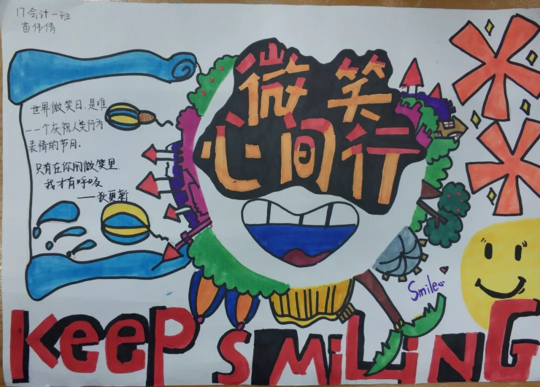 17会计一班
世界微笑日.是唯
一一个庆祝人类行为
表情的节日.
只有在你的微笑里
我才有呼吸
——狄更斯
微笑
心间行
Smile
KEEP SMILING